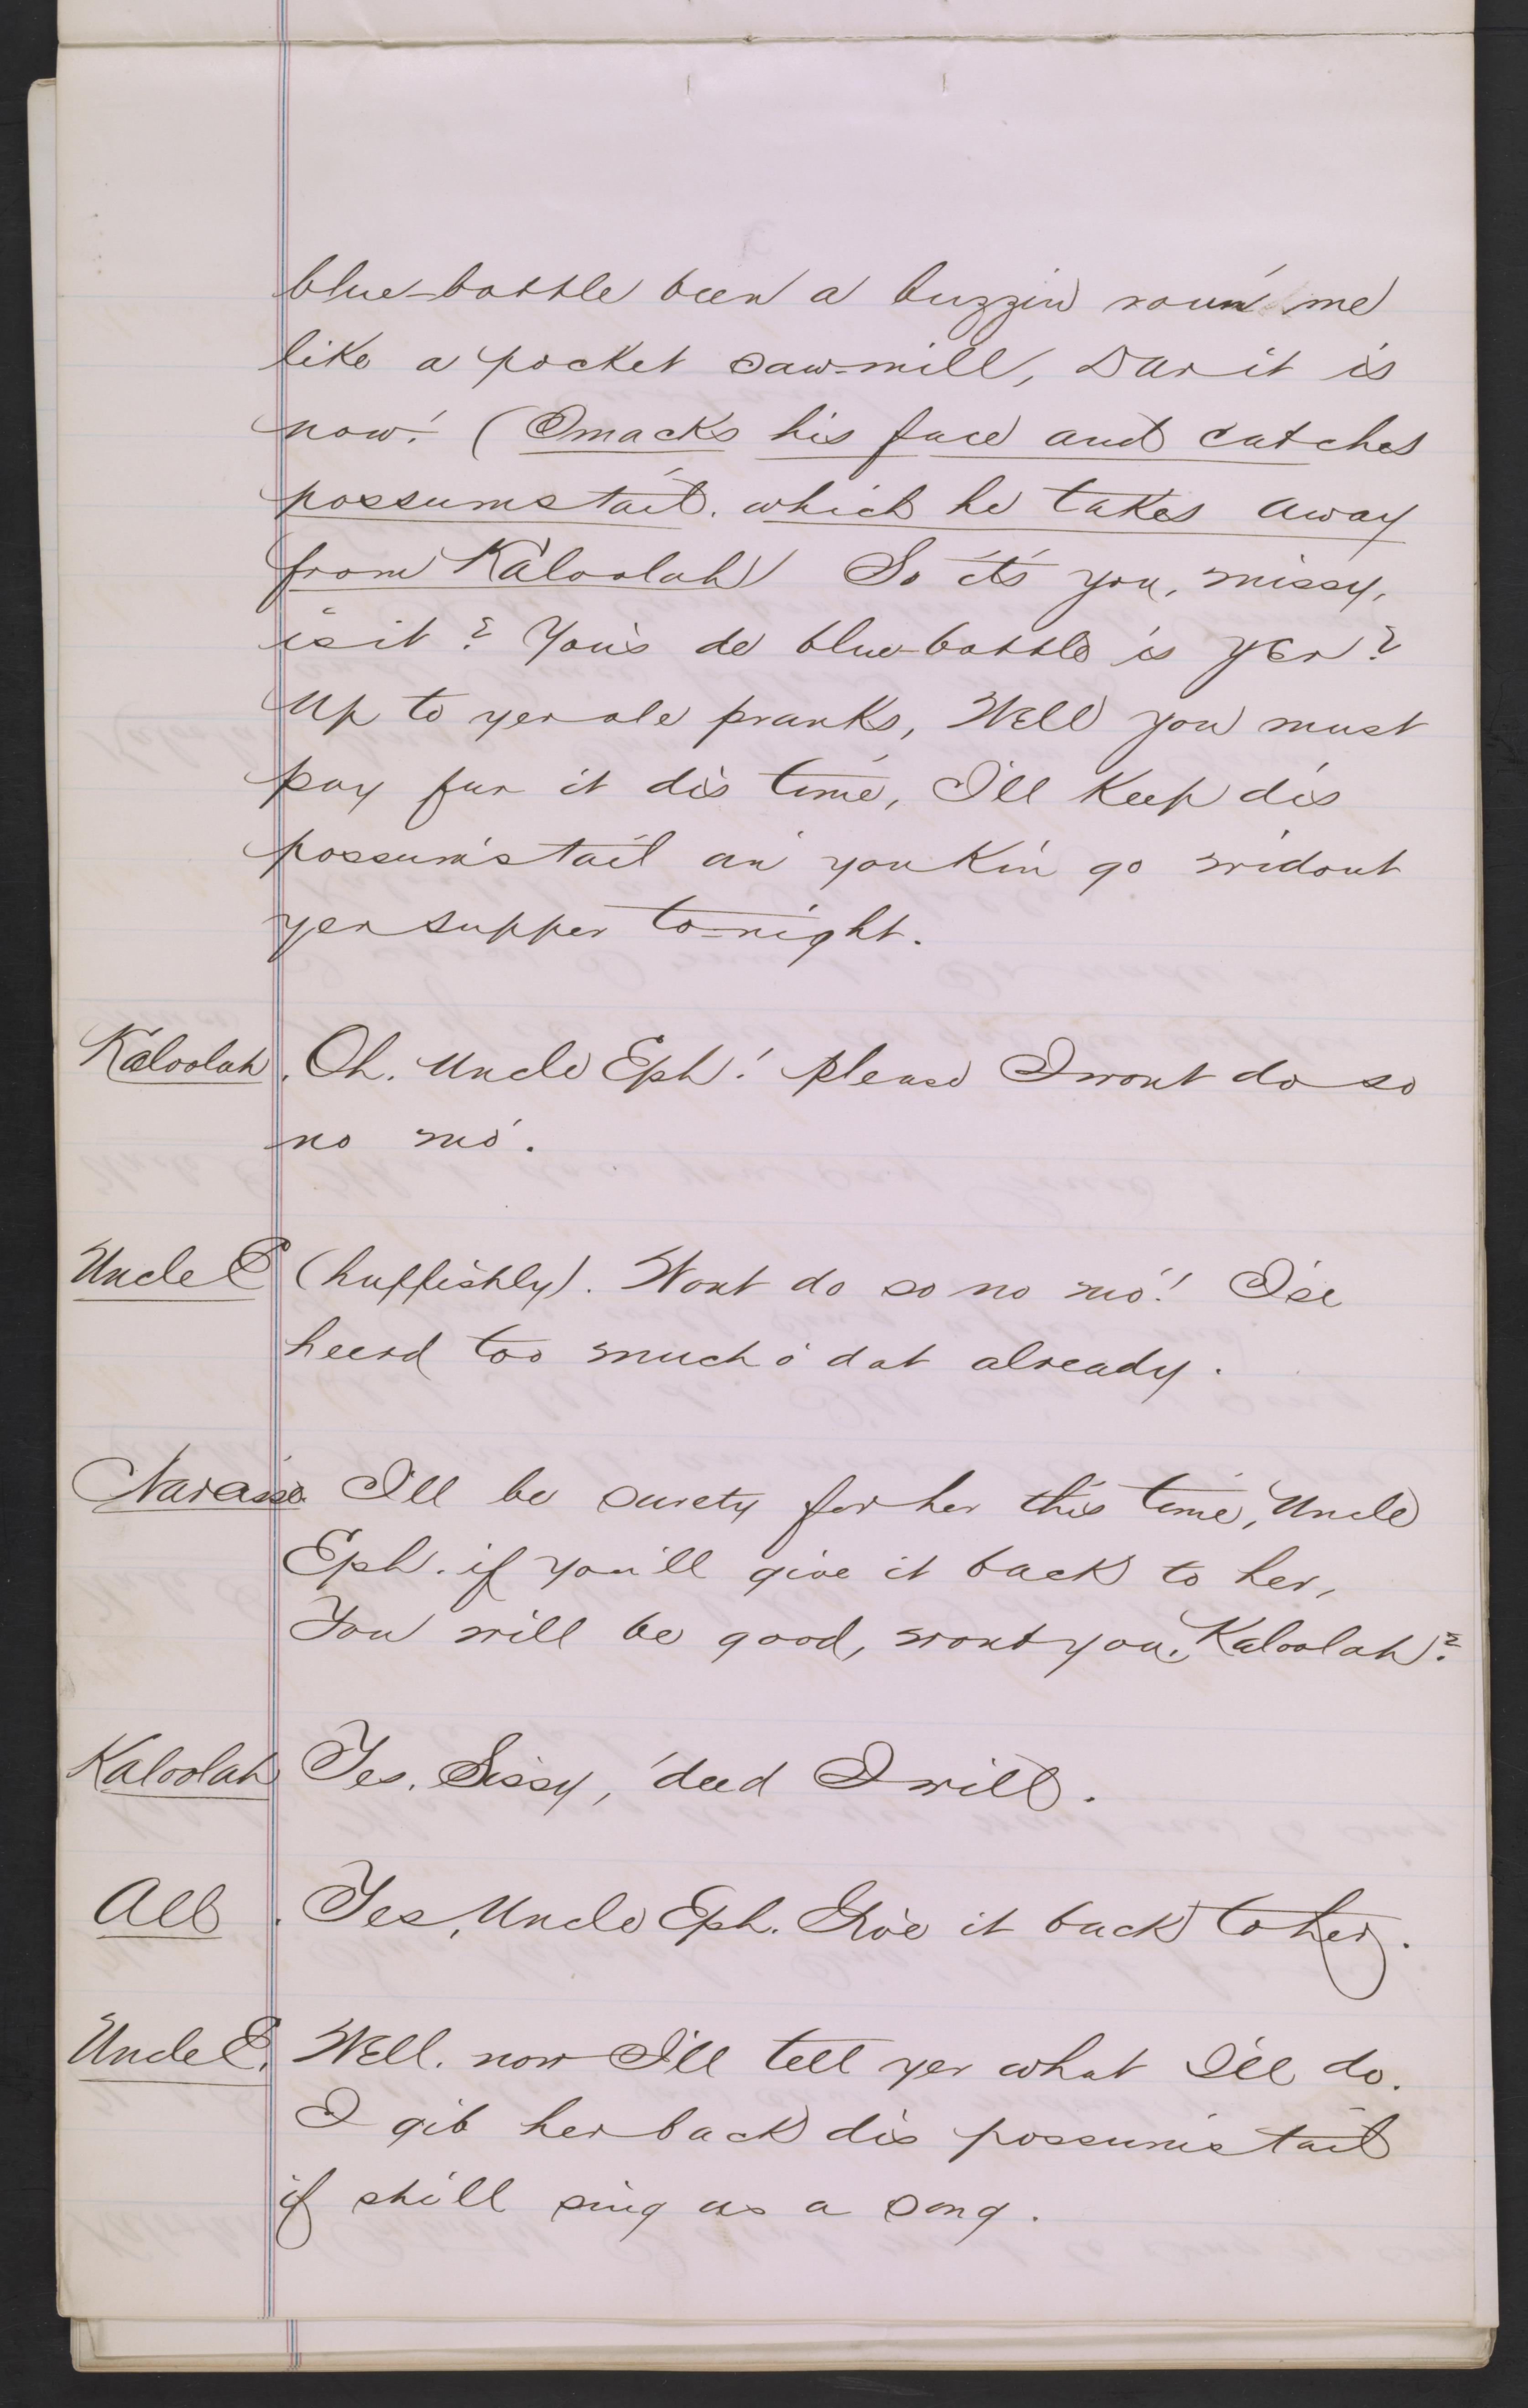 blue-bottle been a buzzin roun' me
like a pocket saw-mill, Dar it is
now! (Smacks his face and catches
possumstail. which he takes away
from Kaloolah) So it's you, missy,
is it? You's de blue-bottle is yer?
Up to yer ole pranks, Well you must
pay fur it dis time, I'll keep dis
possum's tail an' you kin go widout
yer supper to-night.
Kaloolah. Oh. Uncle Eph! please I wont do so
no mo'.
Uncle E (huffishly). Wont do so no mo'! I'se
heerd too much o' dat already.
Narcisse. I'll be surety for her this time, Uncle
Eph. if you'll give it back to her,
You will be good, wont you, Kaloolah?
Kaloolah Yes. Sissy, 'deed I will.
All. Yes, Uncle Eph. Give it back to her.
Uncle E. Well. now I'll tell yer what I'll do.
I gib her back dis possum's tail
if she'll sing us a song.